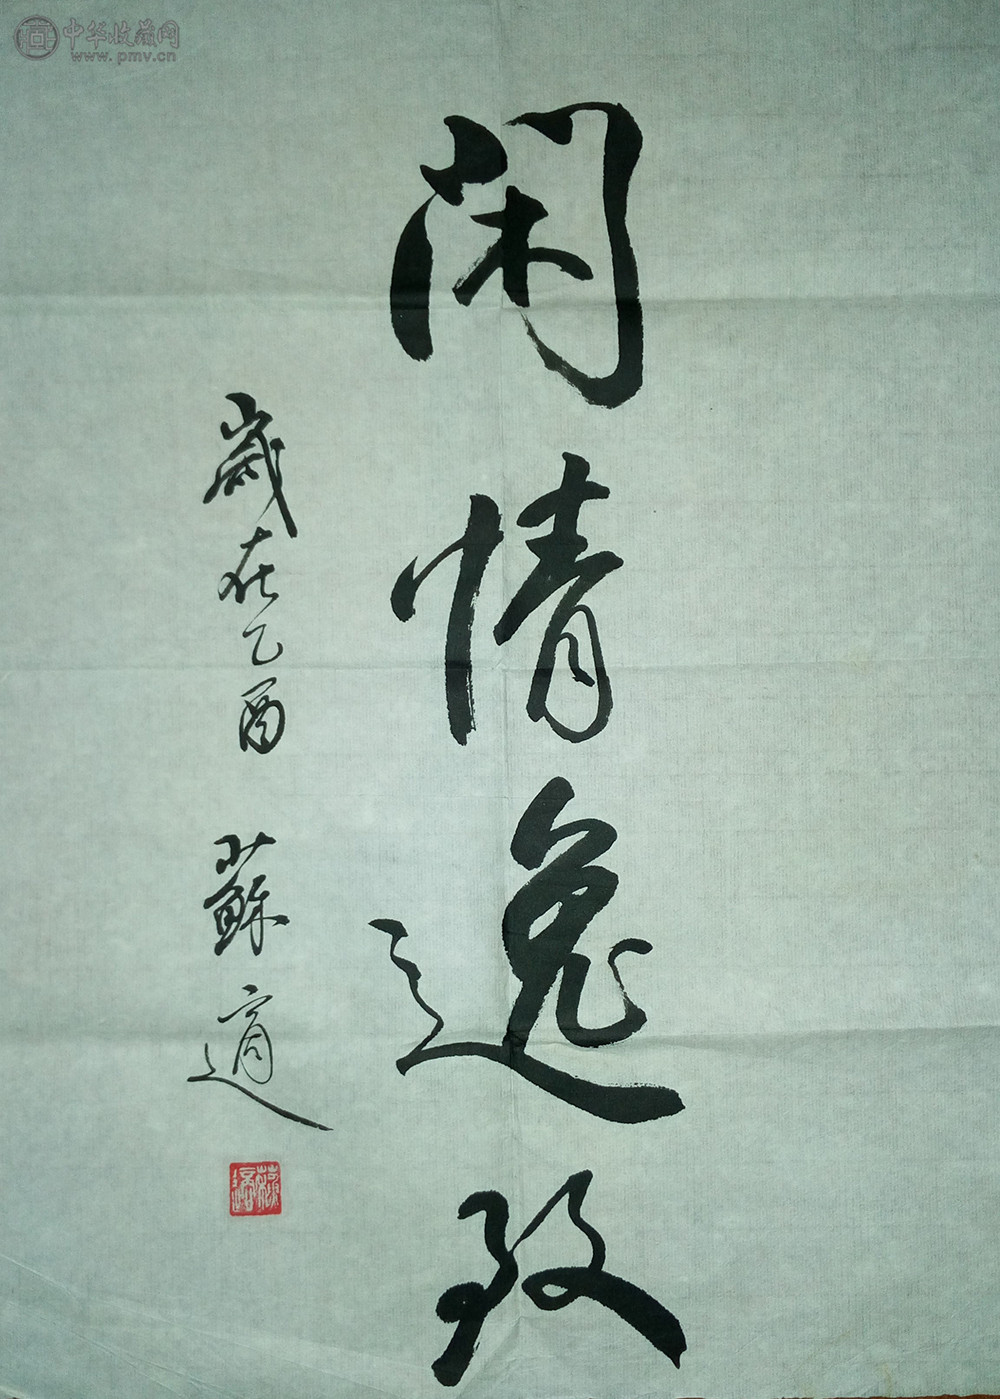 中华收藏网
www.pmv.cn
闲情逸致
歲在乙酉 蘇適
蘇適